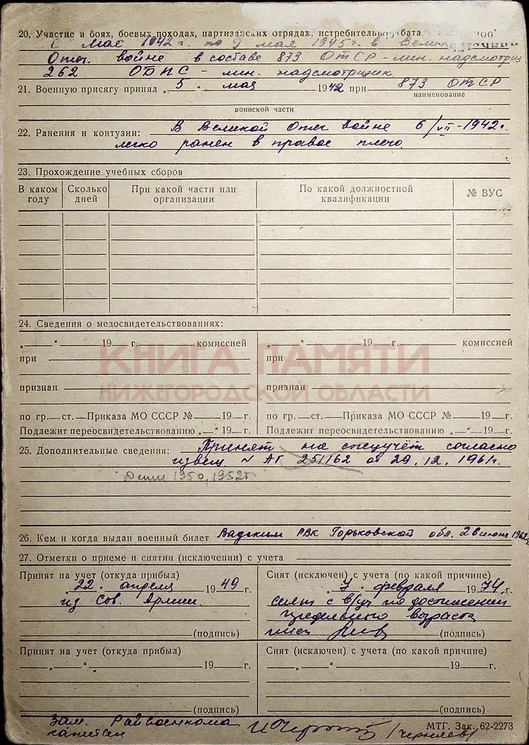 20. Участие в боях, боевых походах, партизанских отрядах, истребительных бата
С мае 1942 г. по 9 мая 1945 г. в Великой
Отеч. войне в составе 873 ОТСР - лин. надсмотрщик
262 ОБПС - лин. надсмотрщик
21. Военную присягу принял „ 5 “ мая 1942 при 873 ОТСР
наименование
воинской части
22. Ранения и контузии: В Великой Отеч войне 6/VII-1942г.
легко ранен в правое плечо
23. Прохождение учебных сборов
В каком году
Сколько дней
При какой части или организации
По какой должностной квалификации
№ ВУС
24. Сведения о медосвидетельствованиях:
„ “ 19 г. комиссией
при
признан
по гр. ст. Приказа МО СССР № 19 г.
Подлежит переосвидетельствованию „ “ 19 г.
„ “ 19 г. комиссией
при
признан
по гр. ст. Приказа МО СССР № 19 г.
Подлежит переосвидетельствованию „ “ 19 г.
КНИГА ПАМЯТИ
НИЖЕГОРОДСКОЙ ОБЛАСТИ
25. Дополнительные сведения: Принят на спецучёт согласно
извещ № АГ 251162 от 29.12.1961г.
Дети 1950, 1952г
26. Кем и когда выдан военный билет Вадским РВК Горьковской обл.
27. Отметки о приеме и снятии (исключении) с учета
Принят на учет (откуда прибыл)
„ 22 “ апреля 1949 г.
из Сов. Армии
(подпись)
Снят (исключен) с учета (по какой причине)
„ 7 “ февраля 1974 г.
снят с в/уч по достижении
предельного возраста
(подпись)
Принят на учет (откуда прибыл)
„ “ 19 г.
(подпись)
Снят (исключен) с учета (по какой причине)
„ “ 19 г.
(подпись)
МТГ. Зак. 62-2273
Зам. Райвоенкома
капитан